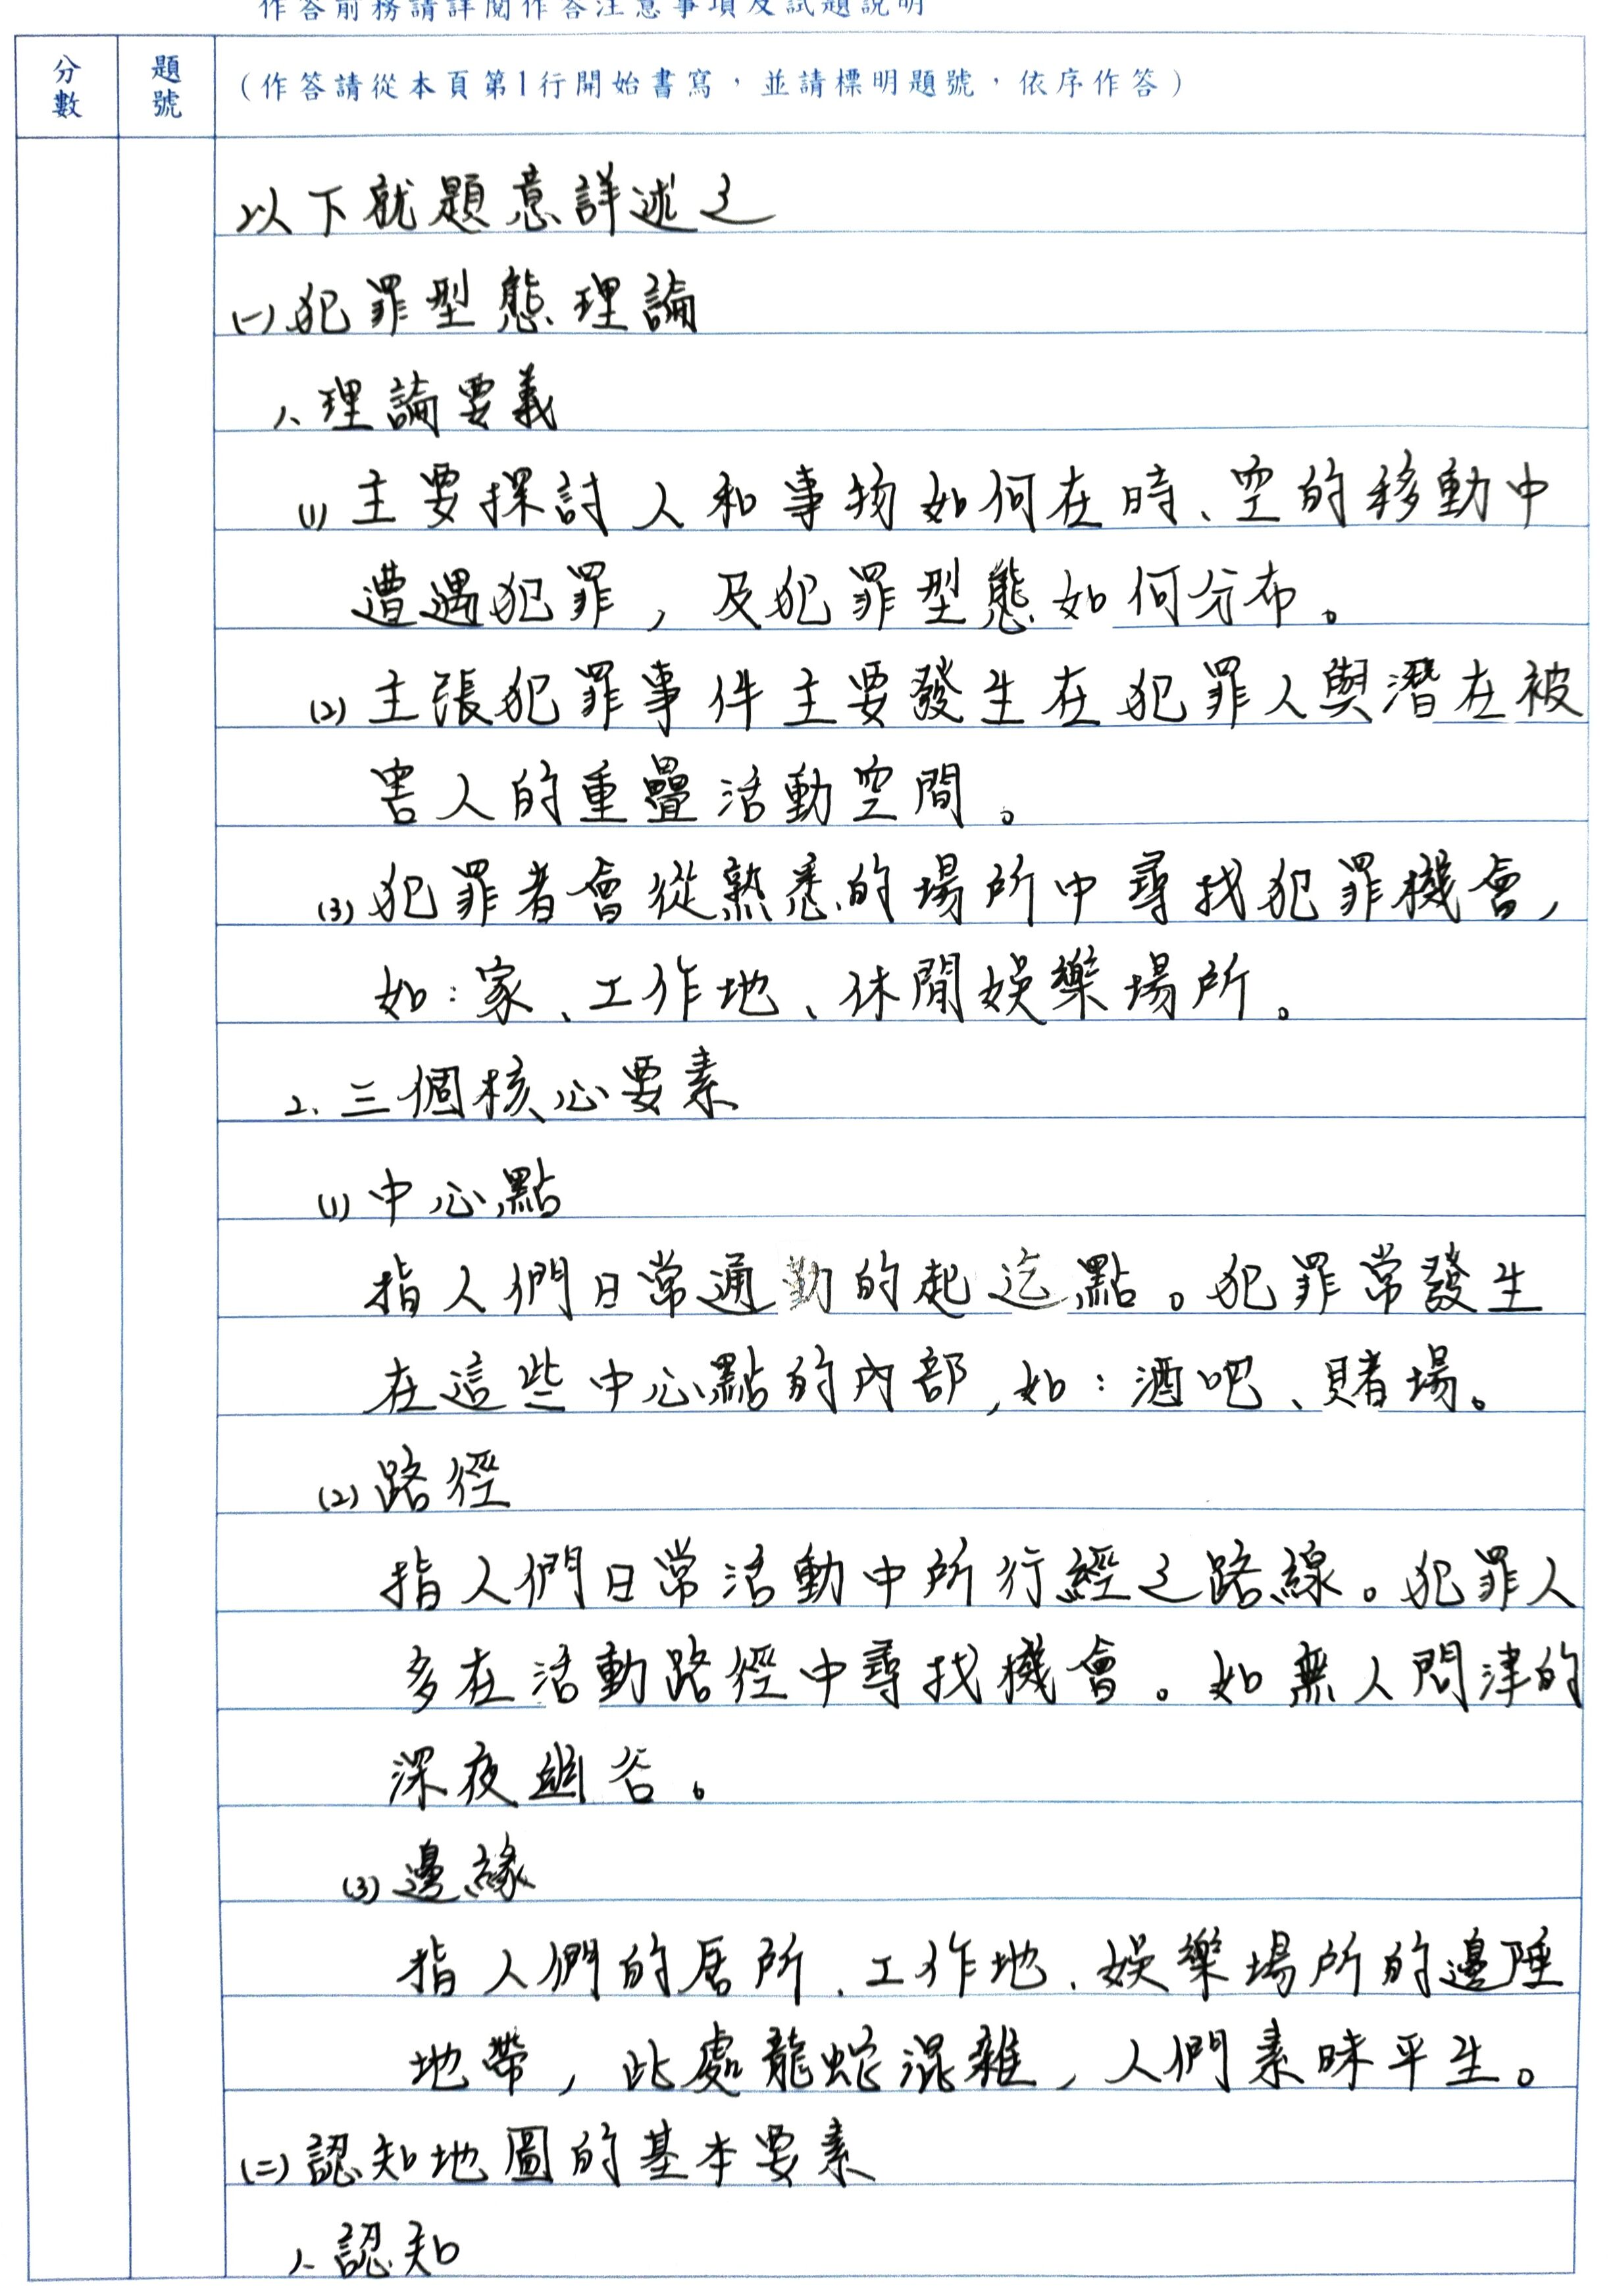 作答前務請詳閱作答注意事項及試題說明
分數
題號
(作答請從本頁第1行開始書寫,並請標明題號,依序作答)
以下就題意詳述之
(一)犯罪型態理論
1、理論要義
(1)主要探討人和事物如何在時、空的移動中
遭遇犯罪,及犯罪型態如何分布。
(2)主張犯罪事件主要發生在犯罪人與潛在被
害人的重疊活動空間。
(3)犯罪者會從熟悉的場所中尋找犯罪機會,
如:家、工作地、休閒娛樂場所。
2、三個核心要素
(1)中心點
指人們日常通勤的起迄點。犯罪常發生
在這些中心點的內部,如:酒吧、賭場。
(2)路徑
指人們日常活動中所行經之路線。犯罪人
多在活動路徑中尋找機會。如無人問津的
深夜幽谷。
(3)邊緣
指人們的居所、工作地、娛樂場所的邊陲
地帶,此處龍蛇混雜,人們素昧平生。
(二)認知地圖的基本要素
1、認知